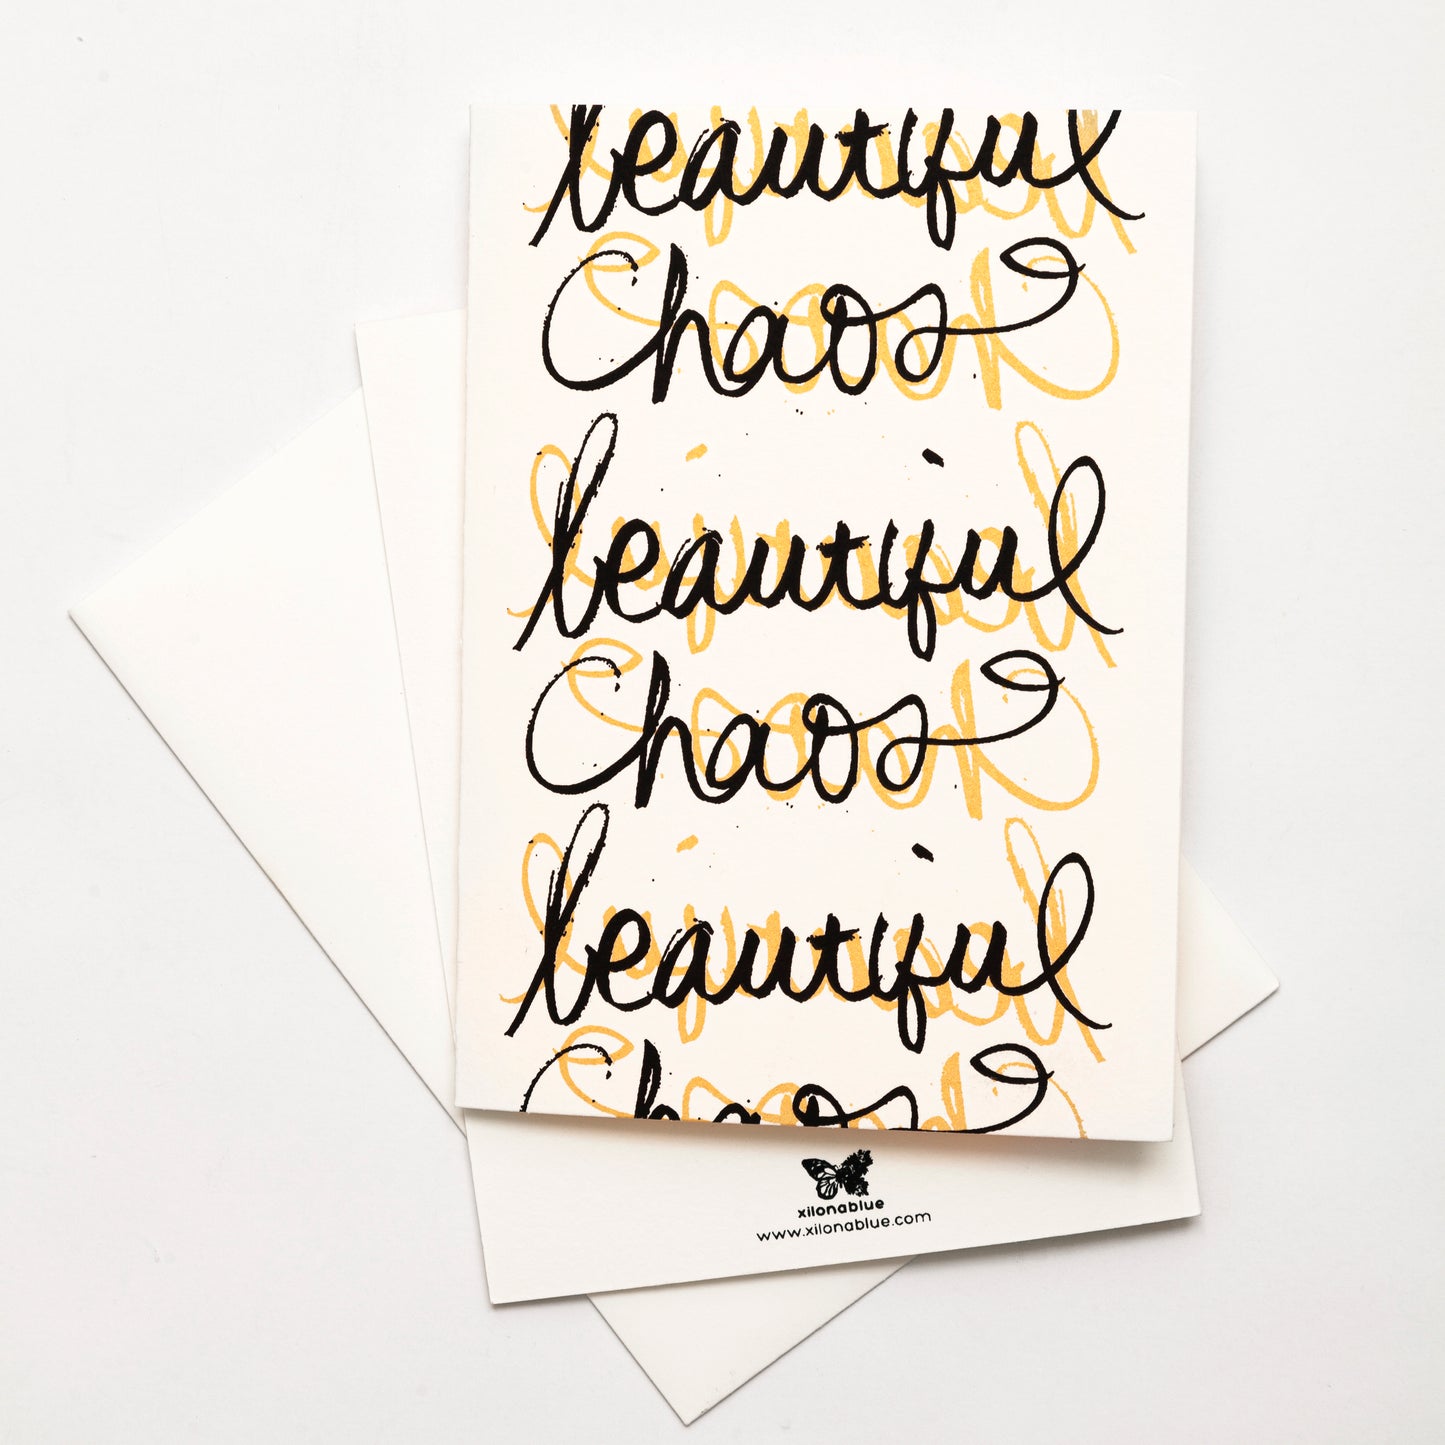 beautiful
Chaos
beautiful
Chaos
beautiful
Chaos
xilonablue
www.xilonablue.com